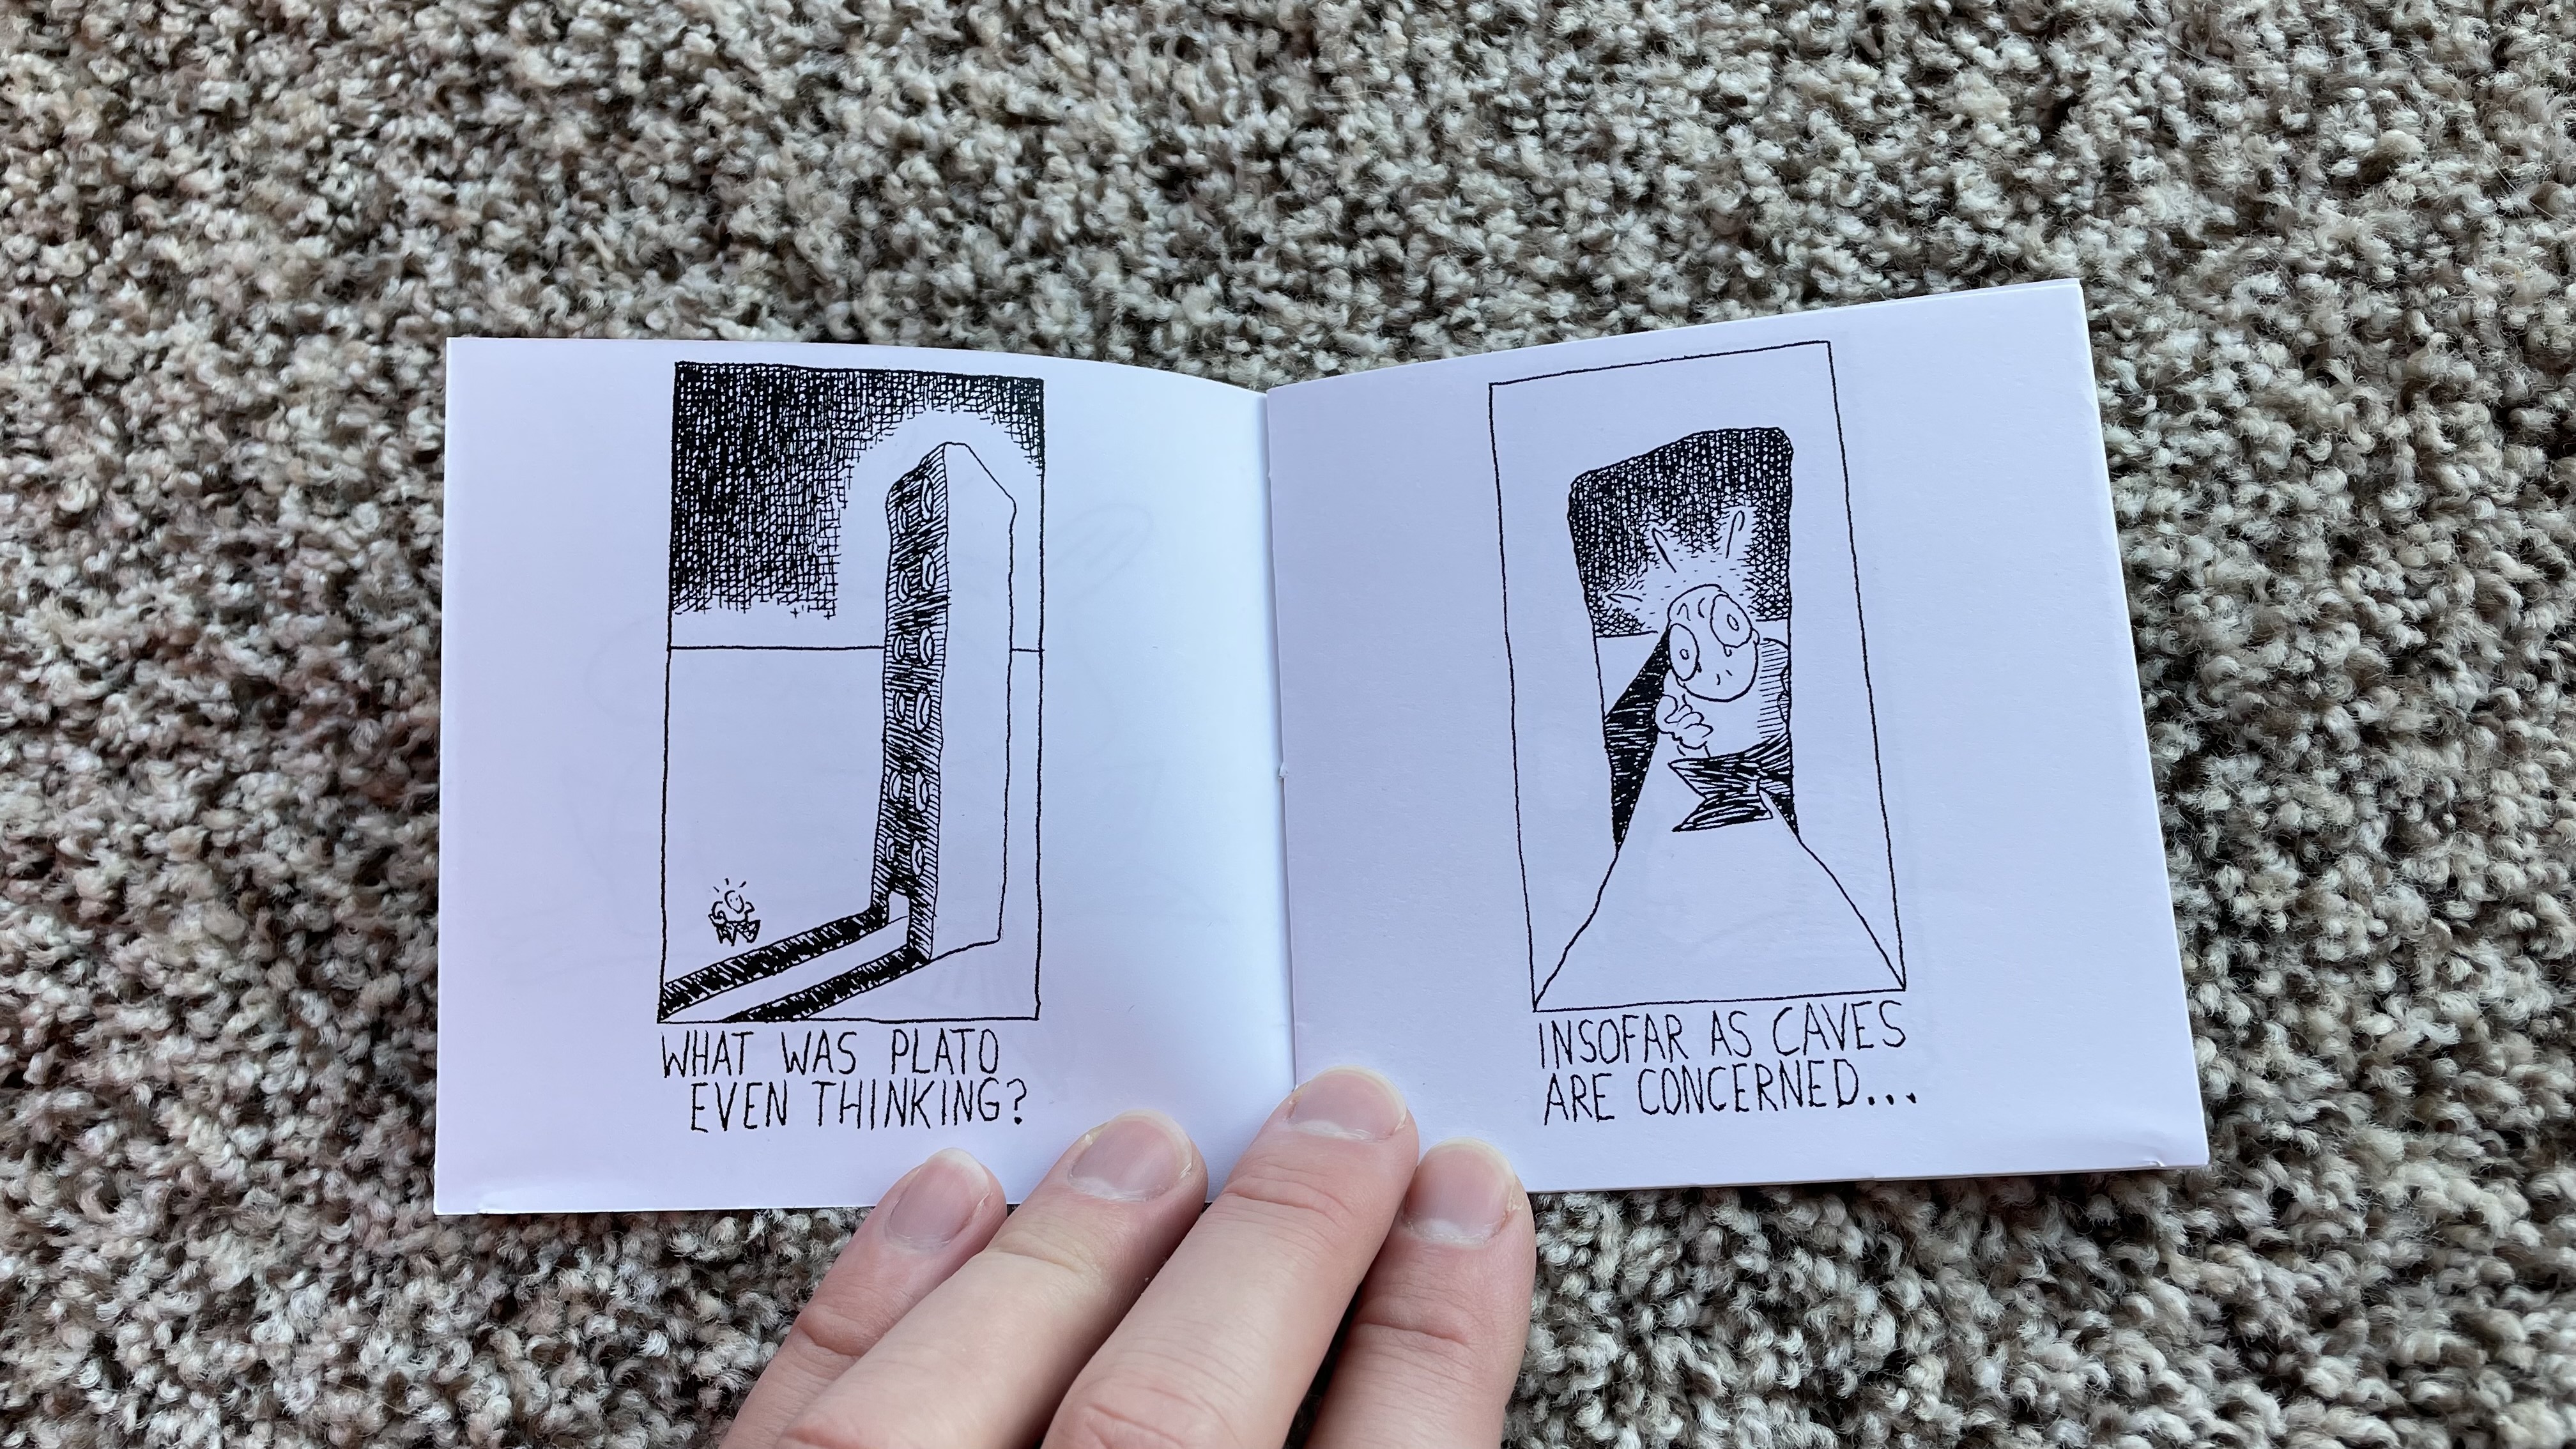 WHAT WAS PLATO
EVEN THINKING?
INSOFAR AS CAVES
ARE CONCERNED...